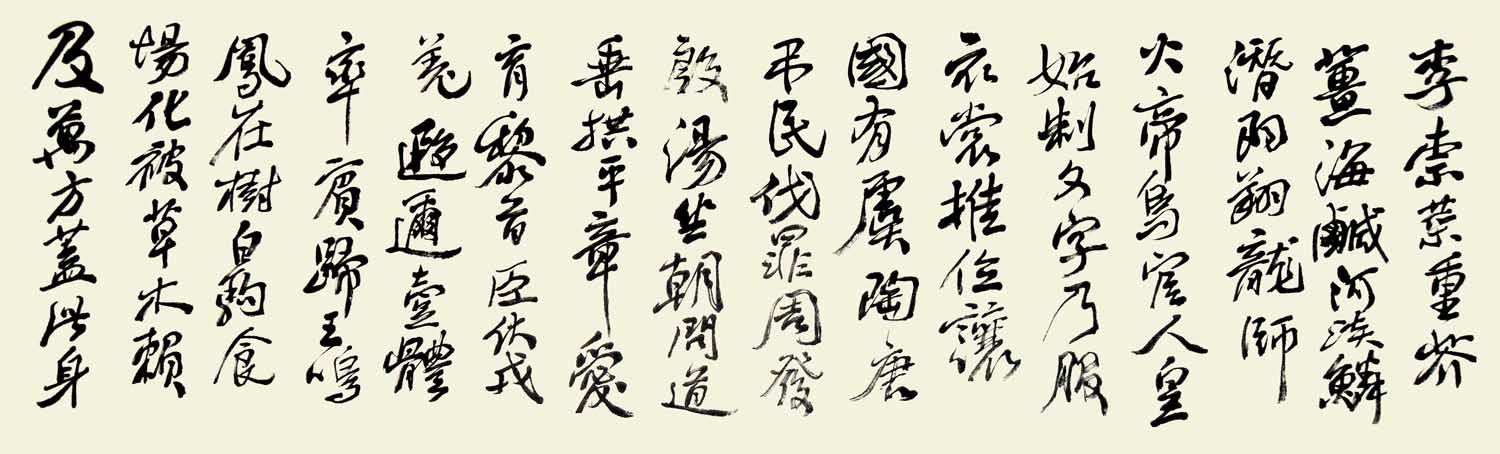 李柰菜重芥
薑海鹹河淡鱗
潛羽翔龍師
火帝鳥官人皇
始制文字乃服
衣裳推位讓
國有虞陶唐
吊民伐罪周發
殷湯坐朝問道
垂拱平章愛
育黎首臣伏戎
羌遐邇壹體
率賓歸王鳴
鳳在樹白駒食
場化被草木賴
及萬方蓋此身